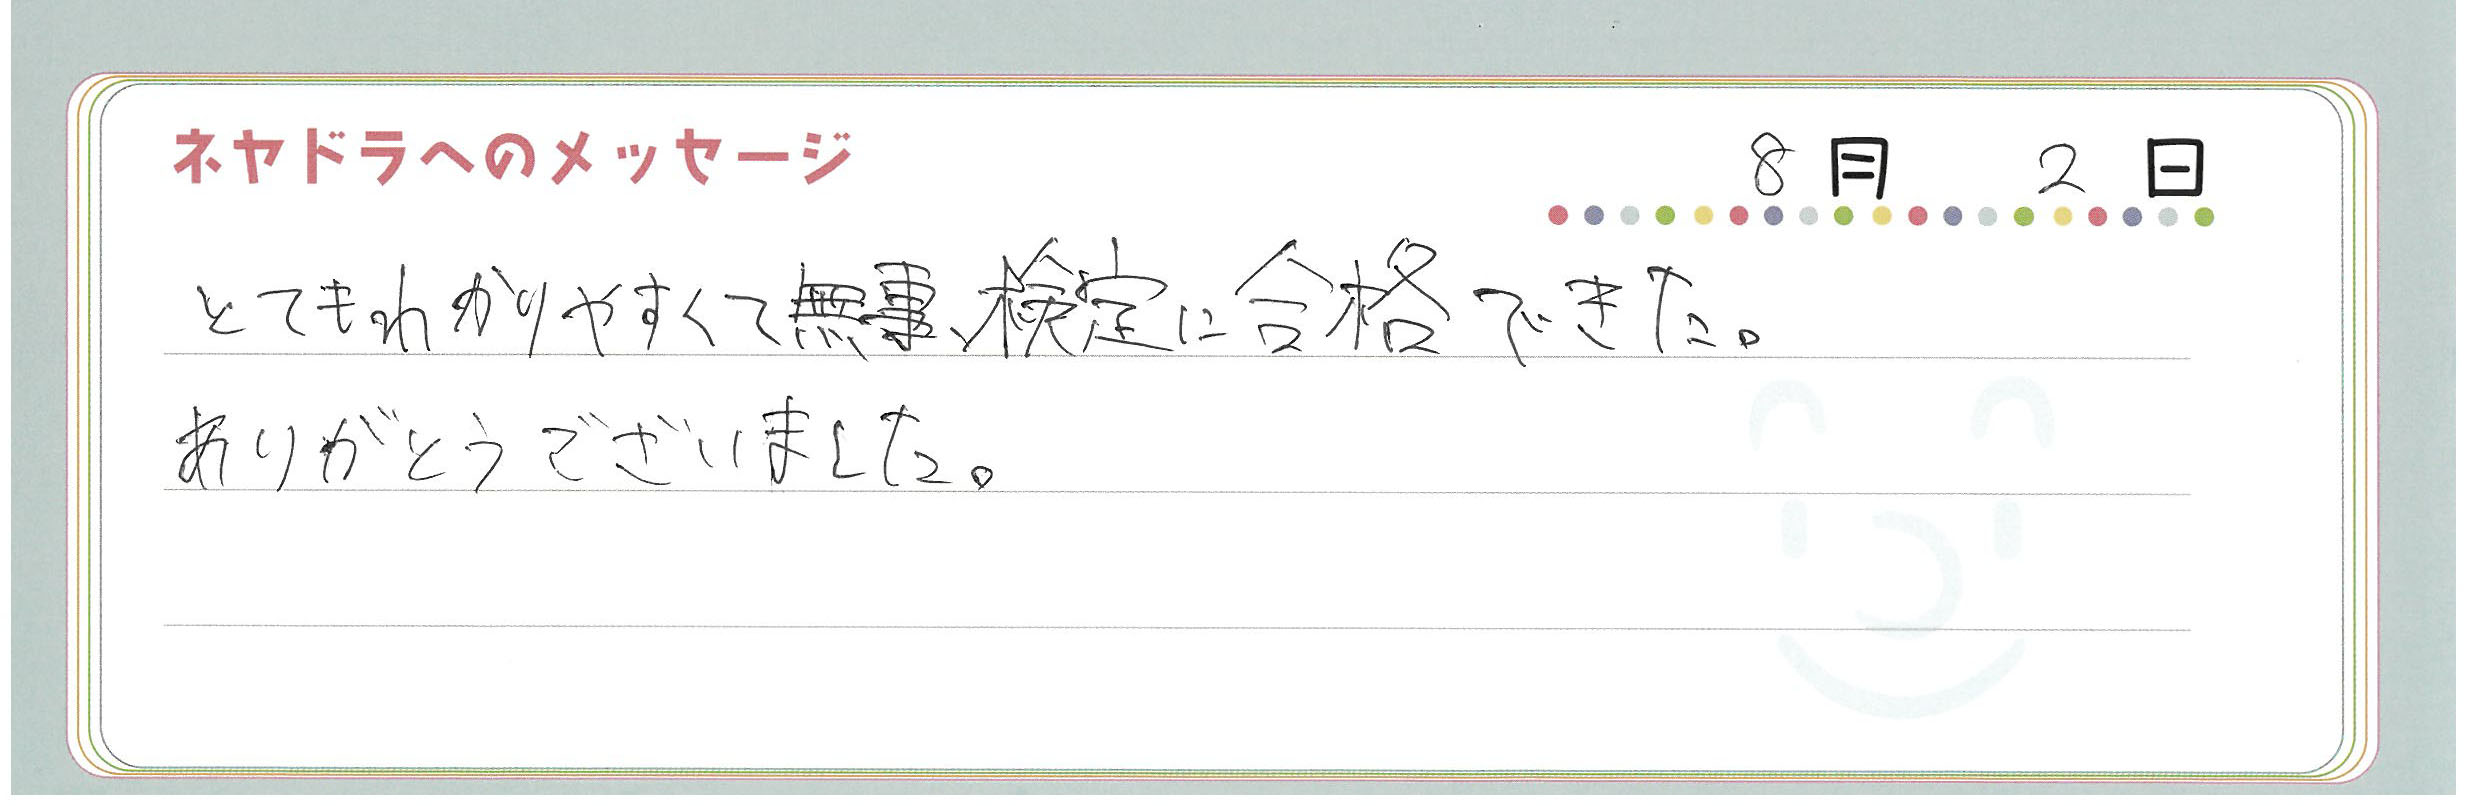 ネヤドラへのメッセージ
8月 2日
とてもわかりやすくて無事、検定に合格できた。
ありがとうございました。